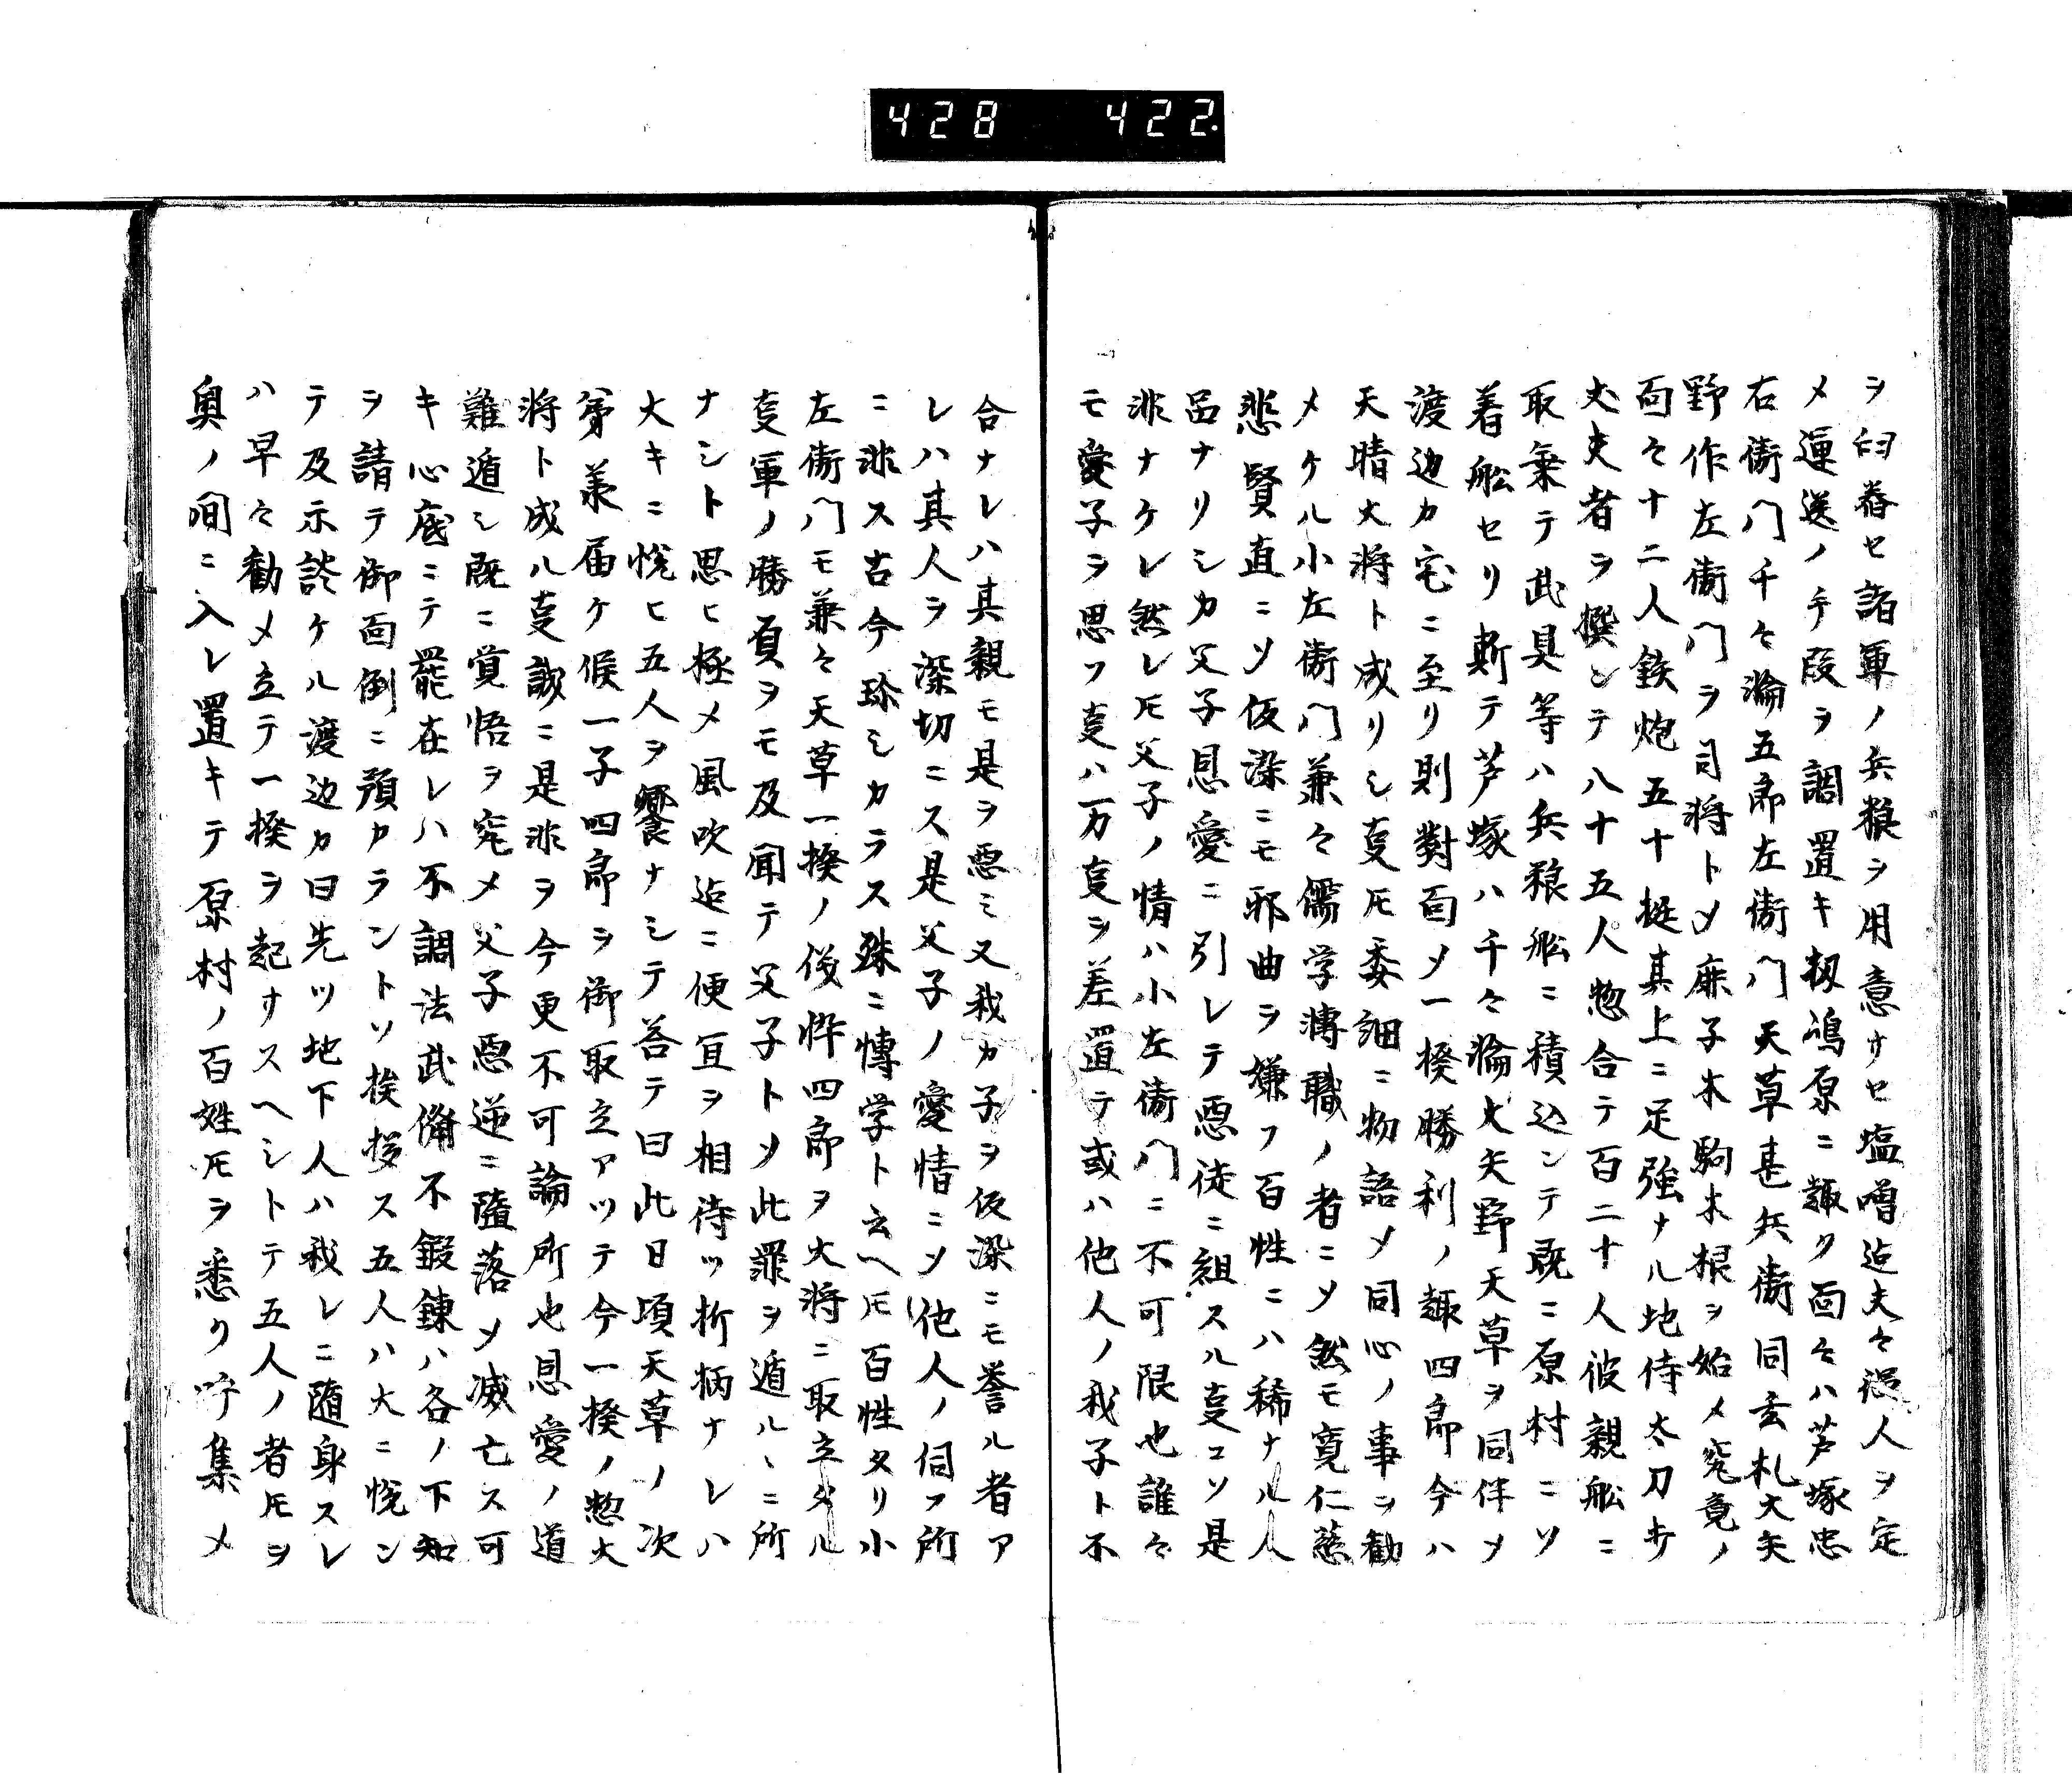 428 422.
ヲ臼舂セ諸軍ノ兵粮ヲ用意サセ塩噌迠夫々役人ヲ定
メ運送ノ手段ヲ調置キ扨嶋原ニ趣ク面々ハ芦塚忠
右衛門千々淪五郎左衛門天草甚兵衛同玄札大矢
野作左衛門ヲ司将トメ鹿子木駒木根ヲ始メ究竟ノ
面々十二人鉄炮五十挺其上ニ足強ナル地侍太刀歩
丈夫者ヲ撰ンテ八十五人惣合テ百二十人彼親舩ニ
取乗テ武具等ハ兵粮舩ニ積込ンテ既ニ原村ニソ
着舩セリ斯テ芦塚ハ千々淪大矢野天草ヲ同伴メ
渡边カ宅ニ至リ則對面メ一揆勝利ノ趣四郎今ハ
天晴大将ト成リシ𡕢㐧委細ニ物語メ同心ノ事ヲ勧
メケル小左衛門兼々儒学博職ノ者ニメ然モ寛仁慈
悲賢直ニソ仮染ニモ邪曲ヲ嫌フ百性ニハ稀ナル人
品ナリシカ父子恩愛ニ引レテ悪徒ニ組スル𡕢コソ是
非ナケレ然レ𪜈父子ノ情ハ小左衛門ニ不可限也誰々
モ愛子ヲ思フ𡕢ハ万𡕢ヲ差置テ或ハ他人ノ我子ト不
合ナレハ其親モ是ヲ悪ミ又我カ子ヲ仮染ニモ誉ル者ア
レハ其人ヲ深切ニス是父子ノ愛情ニソ他人ノ伺フ所
ニ非ス古今珍シカラス殊ニ博学ト云ヘ𪜈百性タリ小
左衛門モ兼々天草一揆ノ後忰四郎ヲ大将ニ取立タル
𡕢軍ノ勝負ヲモ及聞テ父子トメ此罪ヲ遁ルヽニ所
ナシト思ヒ極メ風吹迠ニ便冝ヲ相待ツ折柄ナレハ
大キニ悦ヒ五人ヲ饗ナシテ荅テ曰此日頃天草ノ次
第羕届ケ候一子四郎ヲ御取立アツテ今一揆ノ惣大
将ト成ル𡕢誠ニ是非ヲ今更不可論所也恩愛ノ道
難遁シ既ニ覚悟ヲ究メ父子悪逆ニ墮落メ滅亡ス可
キ心底ニテ罷在レハ不調法武備不鍛錬ハ各ノ下知
ヲ請テ御面倒ニ預カラントソ挨拶ス五人ハ大ニ悦ン
テ及示談ケル渡边カ曰先ツ地下人ハ我レニ随身スレ
ハ早々勧メ立テ一揆ヲ起サスヘシトテ五人ノ者𪜈ヲ
奥ノ間ニ入レ置キテ原村ノ百姓𪜈ヲ悉ク呼集メ